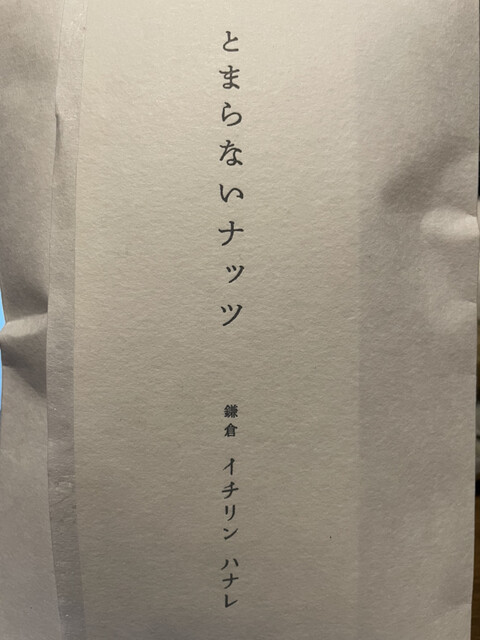 とまらないナッツ
鎌倉 イチリン ハナレ